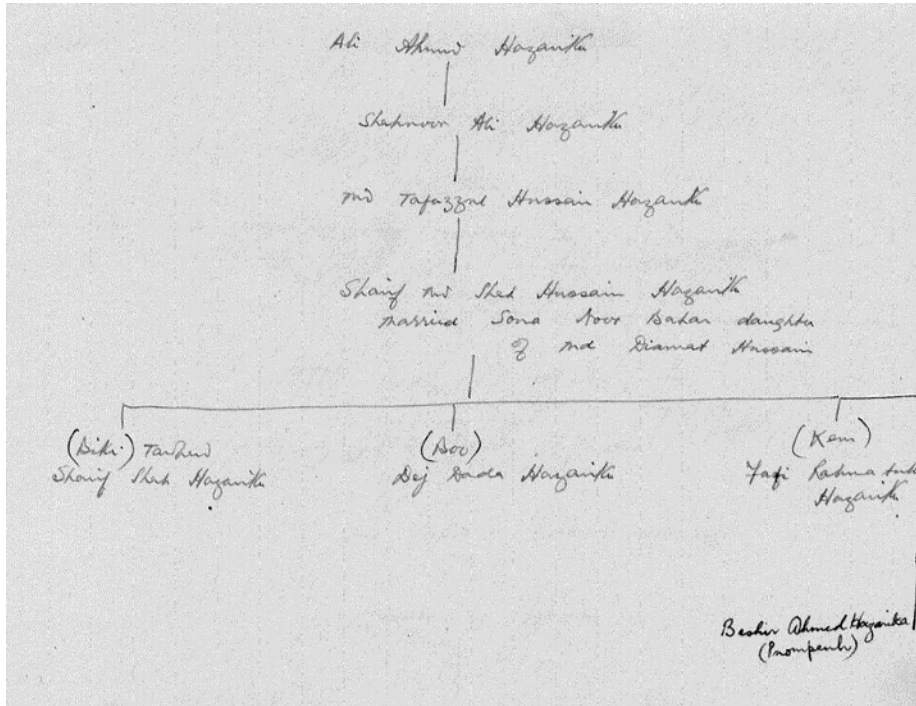 Ali Ahmd Hazarika
Shahnoor Ali Hazarika
Md Tafazzal Hussain Hazarika
Sharif Md Shah Hussain Hazarika
married Sona Noor Bahar daughter
of Md Diamat Hussain
(Biki) 
Sharif Shah Hazarika
(Boo)
Dej Dada Hazarika
(Kem)
Hazarika
Beshir Ahmed Hazarika
(Pnompenh)